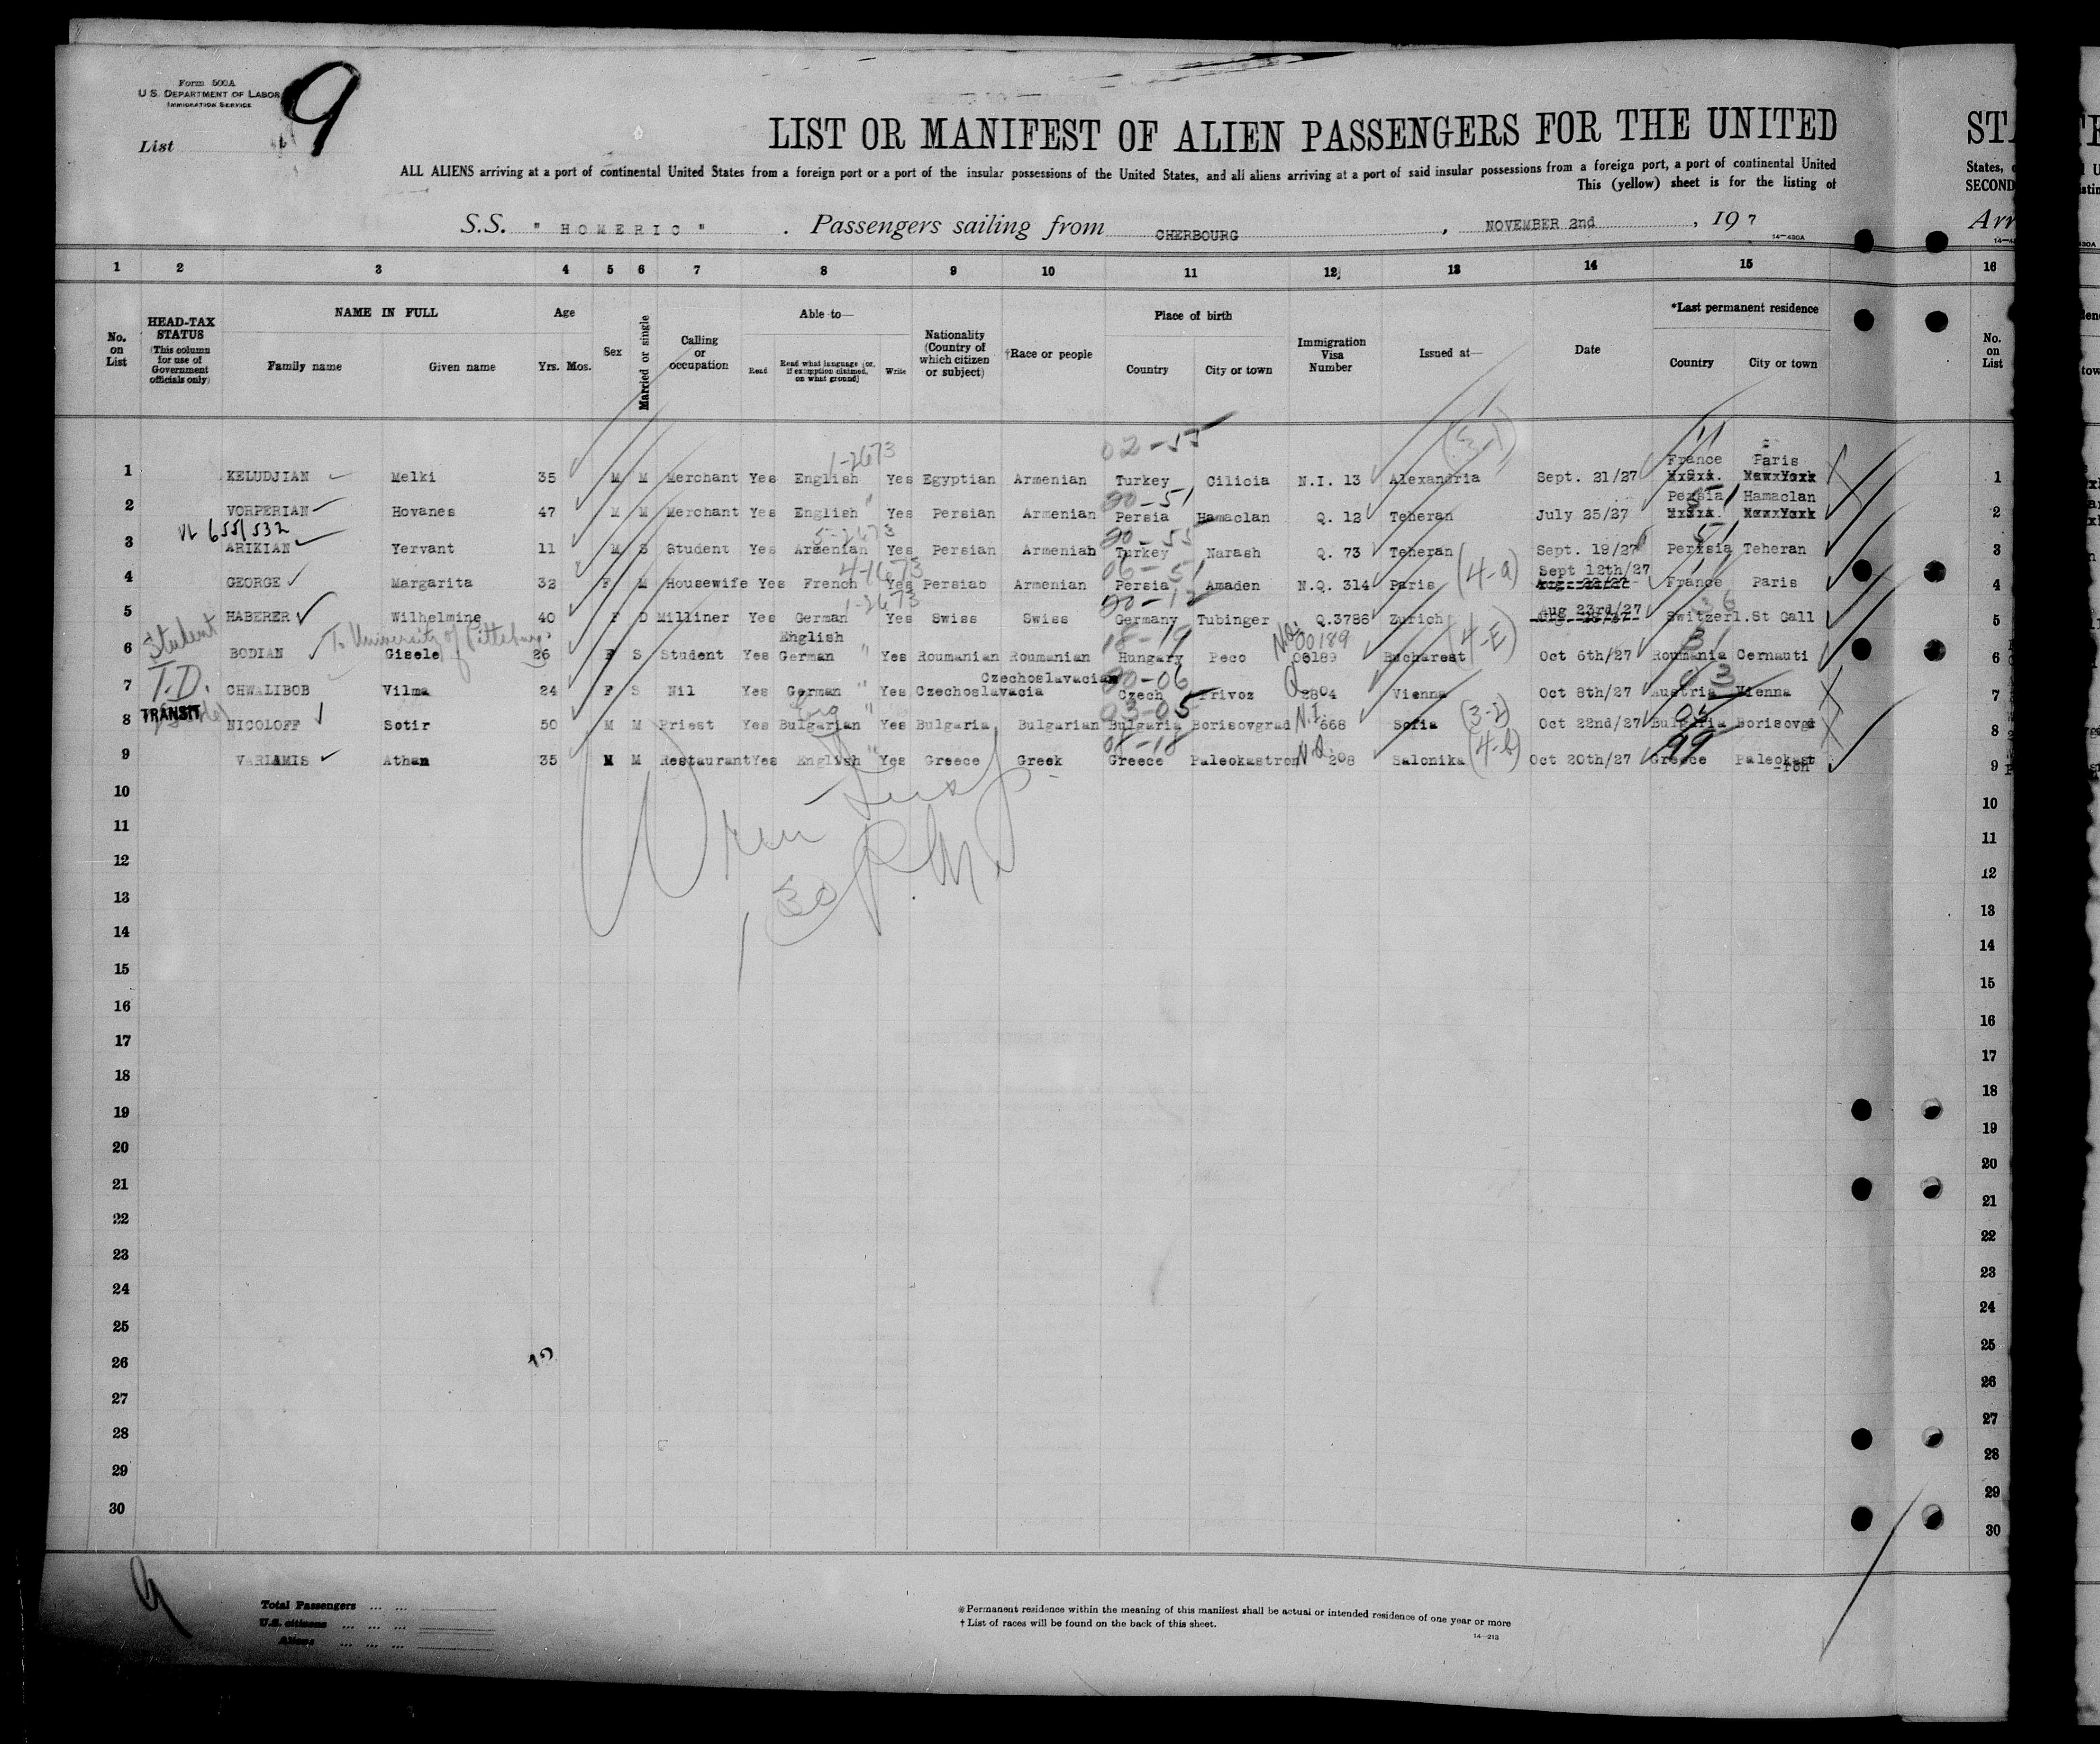 Form 500A
U.S. DEPARTMENT OF LABOR
IMMIGRATION SERVICE
9
List
LIST OR MANIFEST OF ALIEN PASSENGERS FOR THE UNITED
ALL ALIENS arriving at a port of continental United States from a foreign port or a port of the insular possessions of the United States, and all aliens arriving at a port of said insular possessions from a foreign port, a port of continental United
This (yellow) sheet is for the listing of
S.S. " HOMERIC " . Passengers sailing from CHERBOURG , NOVEMBER 2nd , 197
14—430A
1 2 3 4 5 6 7 8 9 10 11 12 13 14 15
No. on List
HEAD-TAX STATUS (This column for use of Government officials only)
NAME IN FULL
Family name Given name
Age
Yrs. Mos.
Sex
Married or single
Calling or occupation
Able to—
Read Read what language (or, if exemption claimed, on what ground) Write
Nationality (Country of which citizen or subject)
†Race or people
Place of birth
Country City or town
Immigration Visa Number
Issued at—
Date
*Last permanent residence
Country City or town
1-2673 02-55 France Paris
1 KELUDJIAN Melki 35 M M Merchant Yes English Yes Egyptian Armenian Turkey Cilicia N.I. 13 Alexandria Sept. 21/27
20-51 Persia Hamaclan
2 VORPERIAN Hovanes 47 M M Merchant Yes English " Yes Persian Armenian Persia Hamaclan Q. 12 Teheran July 25/27
VL 655/532 5-2673 20-55 51
3 ARIKIAN Yervant 11 M S Student Yes Armenian Yes Persian Armenian Turkey Narash Q. 73 Teheran Sept. 19/27 Perisia Teheran
4-1673 06-51 (4-a) Sept 12th/27
4 GEORGE Margarita 32 F M Housewife Yes French Yes Persiao Armenian Persia Amaden N.Q. 314 Paris Aug. 22/27 France Paris
1-2673 20-12 Aug 23rd/27 36
5 HABERER Wilhelmine 40 F D Milliner Yes German Yes Swiss Swiss Germany Tubinger Q.3786 Zurich Switzerl. St Gall
Student To University of Pittsburg English 18-19 N.Q. 00189 (4-E)
6 BODIAN Gisele 26 F S Student Yes German " Yes Roumanian Roumanian Hungary Peco 06189 Bucharest Oct 6th/27 Roumania Cernauti
T.D. Czechoslavacian 20-06 Q 03
7 CHWALIBOB Vilma 24 F S Nil Yes German " Yes Czechoslavacia Czech Privoz 2804 Vienna Oct 8th/27 Austria Vienna
TRANSIT 03-05 N.I. (3-2) 05
8 NICOLOFF Sotir 50 M M Priest Yes Bulgarian " Yes Bulgaria Bulgarian Bulgaria Borisovgrad 668 Sofia Oct 22nd/27 Bulgaria Borisovgr
N.Q. (4-b) 99
9 VARLAMIS Athan 35 M M Restaurant Yes English " Yes Greece Greek Greece Paleokastron 208 Salonika Oct 20th/27 Greece Paleokast
-ron
10
11
12
13
14
15
16
17
18
19
20
21
22
23
24
25
26
27
28
29
30
9
Total Passengers ... ...
U.S. citizens ... ... ...
Aliens ... ... ...
*Permanent residence within the meaning of this manifest shall be actual or intended residence of one year or more
† List of races will be found on the back of this sheet.
14—213
STA
States,
SECOND
Arr
16
No. on List
1
2
3
4
5
6
7
8
9
10
11
12
13
14
15
16
17
18
19
20
21
22
23
24
25
26
27
28
29
30